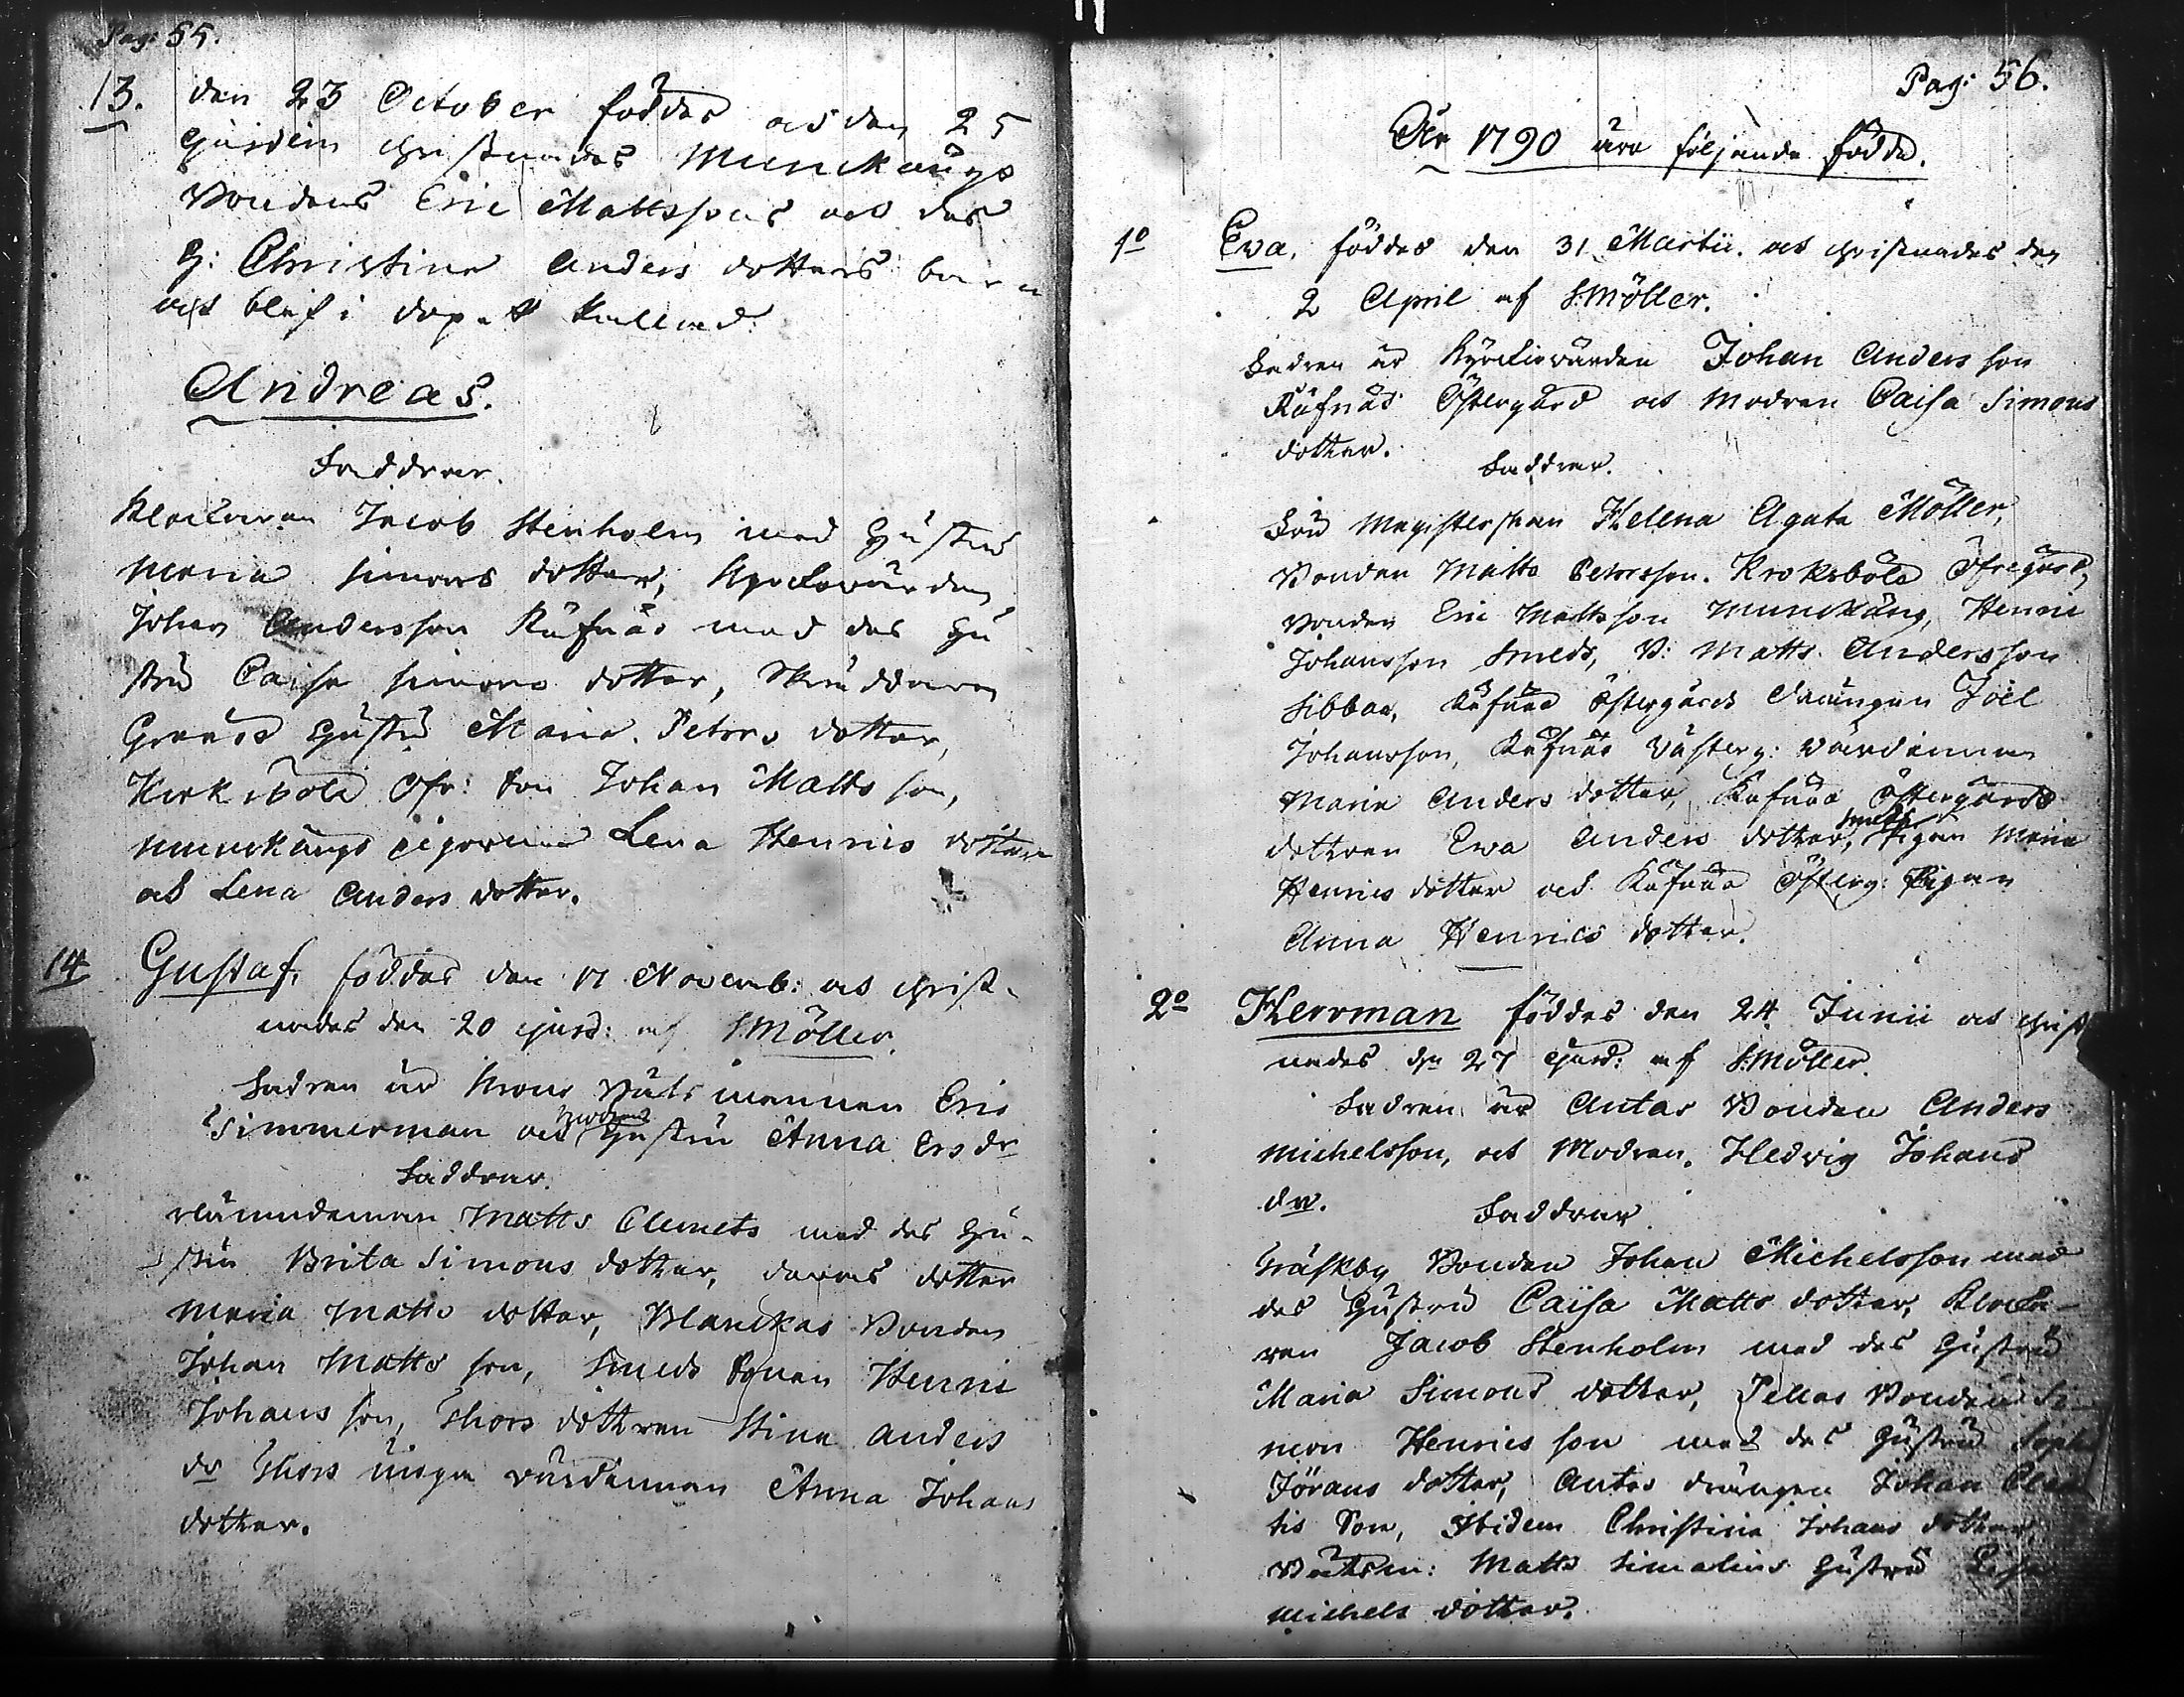 Pag: 55.
13. den 23 October föddes och den 25
ejusdem christnades Munckängs
Bondens Eric Mattssons och des
H: Christina Anders dotters barn
och blef i dopet kallad:
Andreas.
Faddrar.
Klockaren Jacob Stenholm med Hustru
Maria Simons dotter, Kyrckovärden
Johan Andersson Räfnäs med des Hu
stru Caisa Simons dotter, Skräddaren
Hustru Maria Peters dotter,
Ofr: Son Johan Matts son,
Munckängs Lena Henrics dotter
och Lena Anders dotter.
14 Gustaf, föddes den 17 Novemb: och christ-
nades den 20 ejusd: af S: Möller.
Fadren är Krono Båtsmannen Eric
Simmerman och modren Hustru Anna Ersdr
Faddrar.
Nämndeman Matts Clemets med des Hu-
stru Brita Simons dotter, deras dotter
Maria Matts dotter, Blanckas Bonden
Johan Matts son, Smeds Henric
Johans son, Thors dottren Stina Anders
dr Thors värdinnan Anna Johans
dotter.
Pag: 56.
År 1790 äro följande födde.
1o Eva, föddes den 31 Martii. och christnades den
2 April af S: Möller.
Fadren är Kyrckovärden Johan Anders son
Räfnäs Östergård och Modren Caisa Simons
dotter.
Faddrar.
Fru Magisterskan Helena Agata Möller,
Bonden Matts Petersson. Kroksböle Öfregård,
Bonden Eric Mattsson Munckäng, Henric
Johansson Smeds, B: Matts Andersson
Sibbas, Räfnäs Östergårds Drängen Joël
Johansson, Räfnäs Västerg: Värdinnan
Maria Anders dotter, Räfnäs Östergårds
dottren Ewa Anders dotter, Smeds Pigan Maria
Henrics dotter och Räfnäs Österg: Pigan
Anna Henrics dotter.
2o Herrman föddes den 24 Junii och christ
nades dn 27 ejusd: af S: Möller.
Fadren är Antas Bonden Anders
Michelsson, och Modren, Hedvig Johans
dr.
Faddrar.
Träskby Bonden Johan Michelsson med
des Hustru Caisa Matts dotter, Klocka-
ren Jacob Stenholm med des Hustru
Maria Simons dotter, Pellas Bonden Si-
mon Henrics son med des Hustru
Jörans dotter, Antas drängen Johan
Son, Ibidem Christina Johans dotter,
Båtsm: Matts Simalins Hustru
Michels dotter.